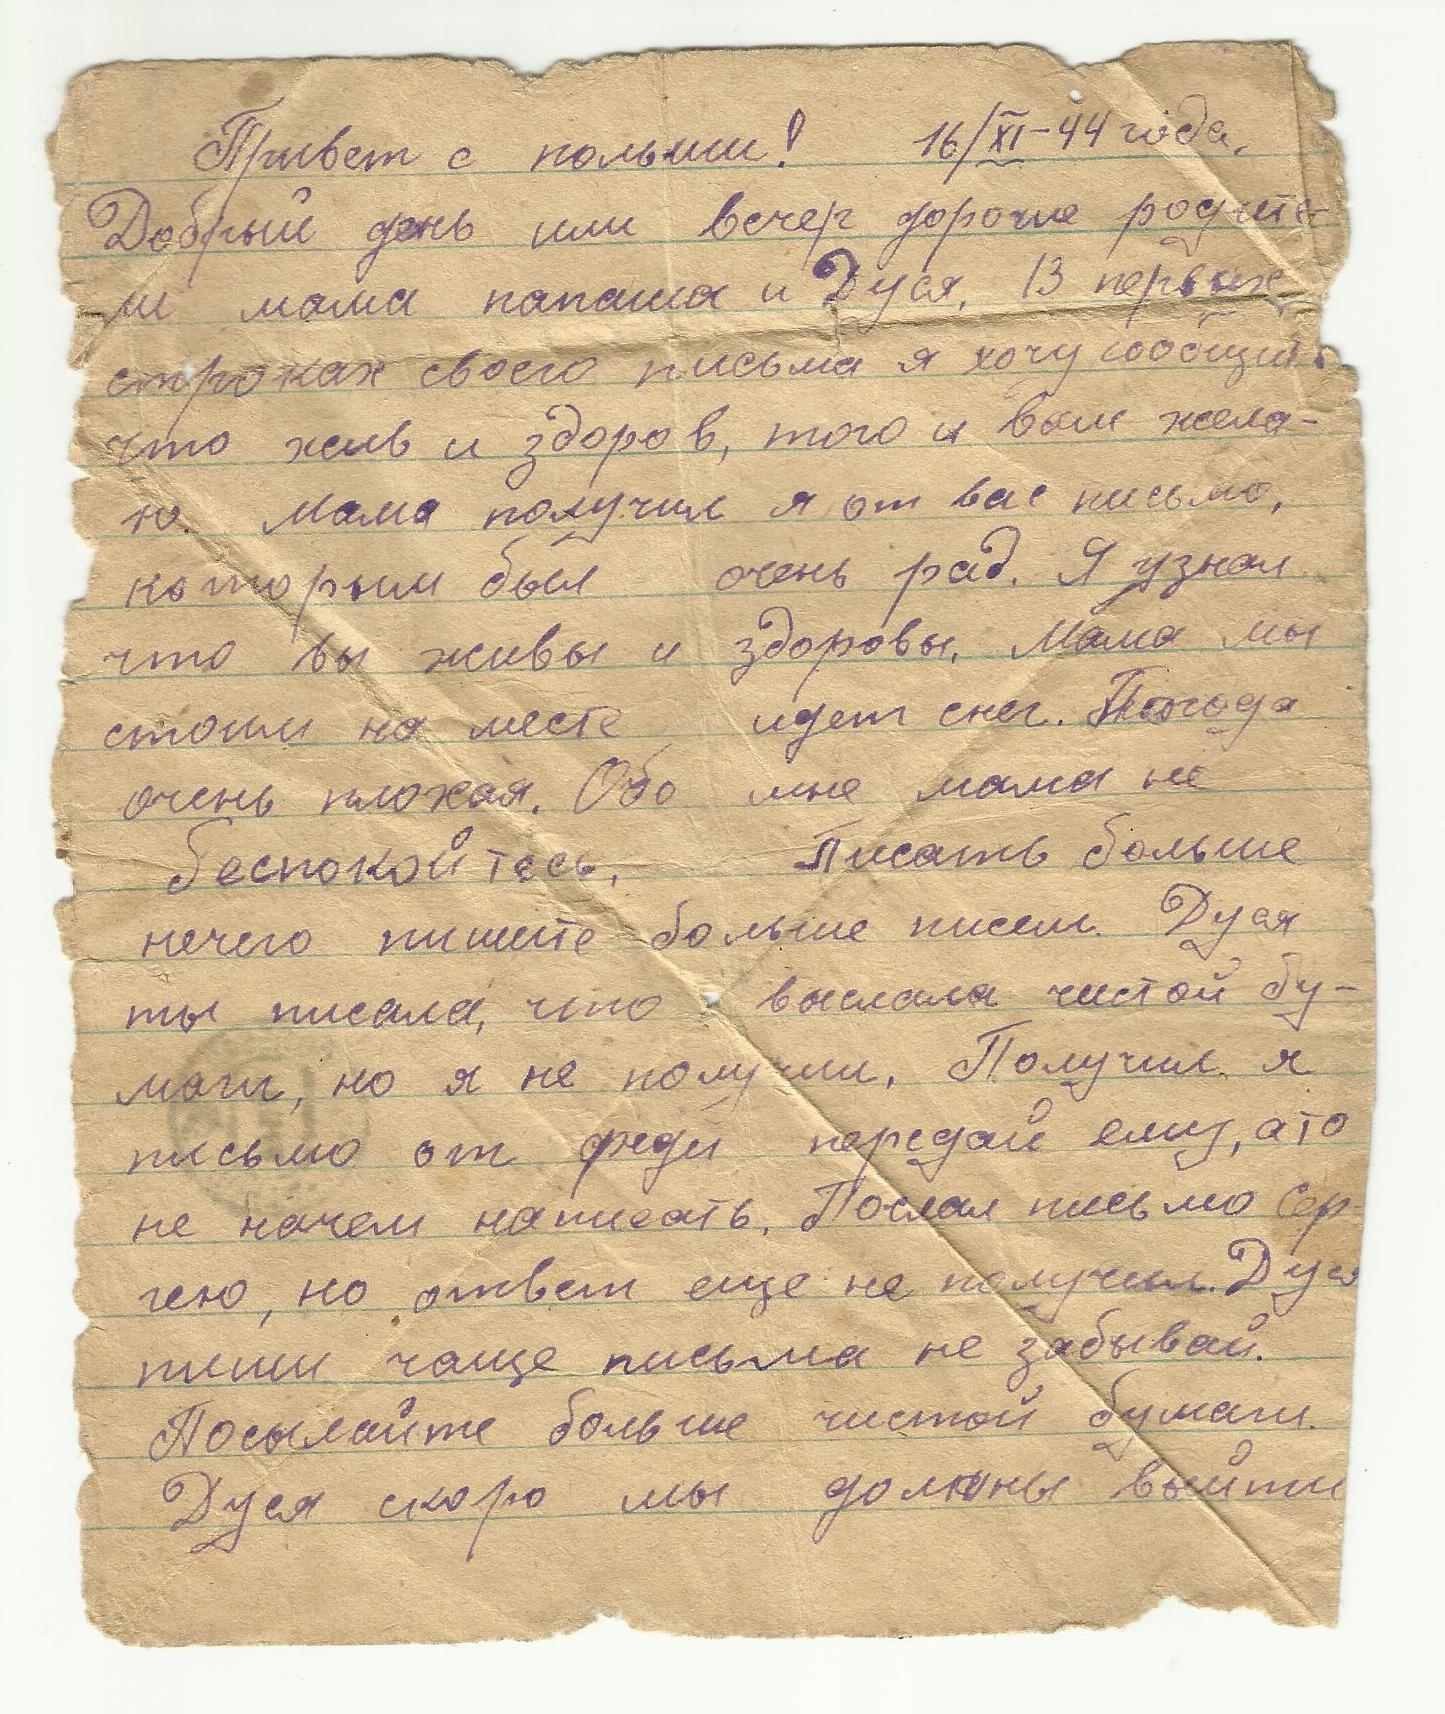 Привет с польши! 16/XI-44 года.
Добрый день или вечер дорогие родите-
ли мама папаша и Дуся. В первых
строках своего письма я хочу сообщить
что жив и здоров, того и вам жела-
ю. Мама получил я от вас письмо,
которым был очень рад. Я узнал
что вы живы и здоровы. Мама мы
стоим на месте идет снег. Погода
очень плохая. Обо мне мама не
беспокойтесь. Писать больше
нечего пишите больше писем. Дуся
ты писала, что выслала чистой бу-
маги, но я не получил. Получил я
письмо от феди передай ему, а то
не начем написать. Послал письмо Сер-
гею, но ответ еще не получил. Дуся
пиши чаще письма не забывай.
Посылайте больше чистой бумаги.
Дуся скоро мы должны выйти